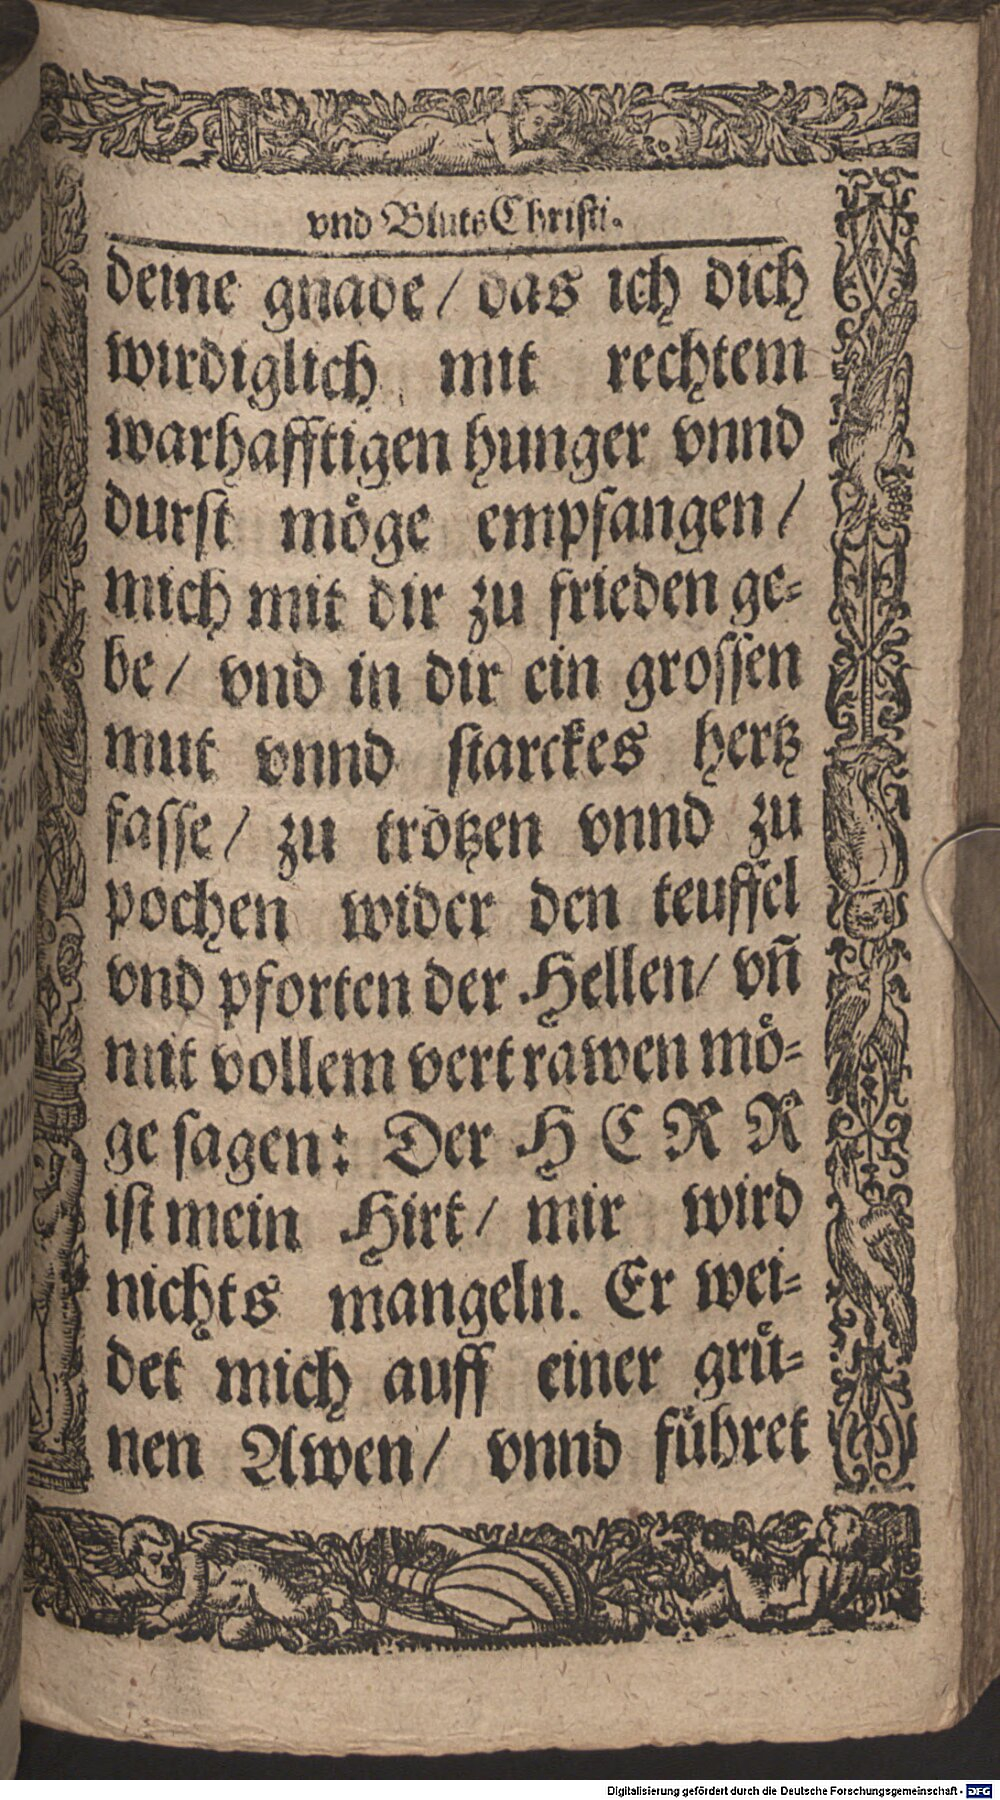 vnd Bluts Christi.
deine gnade / das ich dich
wirdiglich mit rechtem
warhafftigen hunger vnnd
durst möge empfangen /
mich mit dir zu frieden ge-
be / vnd in dir ein grossen
mut vnnd starckes hertz
fasse / zu trötzen vnnd zu
pochen wider den teuffel
vnd pforten der Hellen / vñ
mit vollem vertrawen mö-
ge sagen: Der HERR
ist mein Hirt / mir wird
nichts mangeln. Er wei-
det mich auff einer grü-
nen Awen / vnnd führet
Digitalisierung gefördert durch die Deutsche Forschungsgemeinschaft - DFG